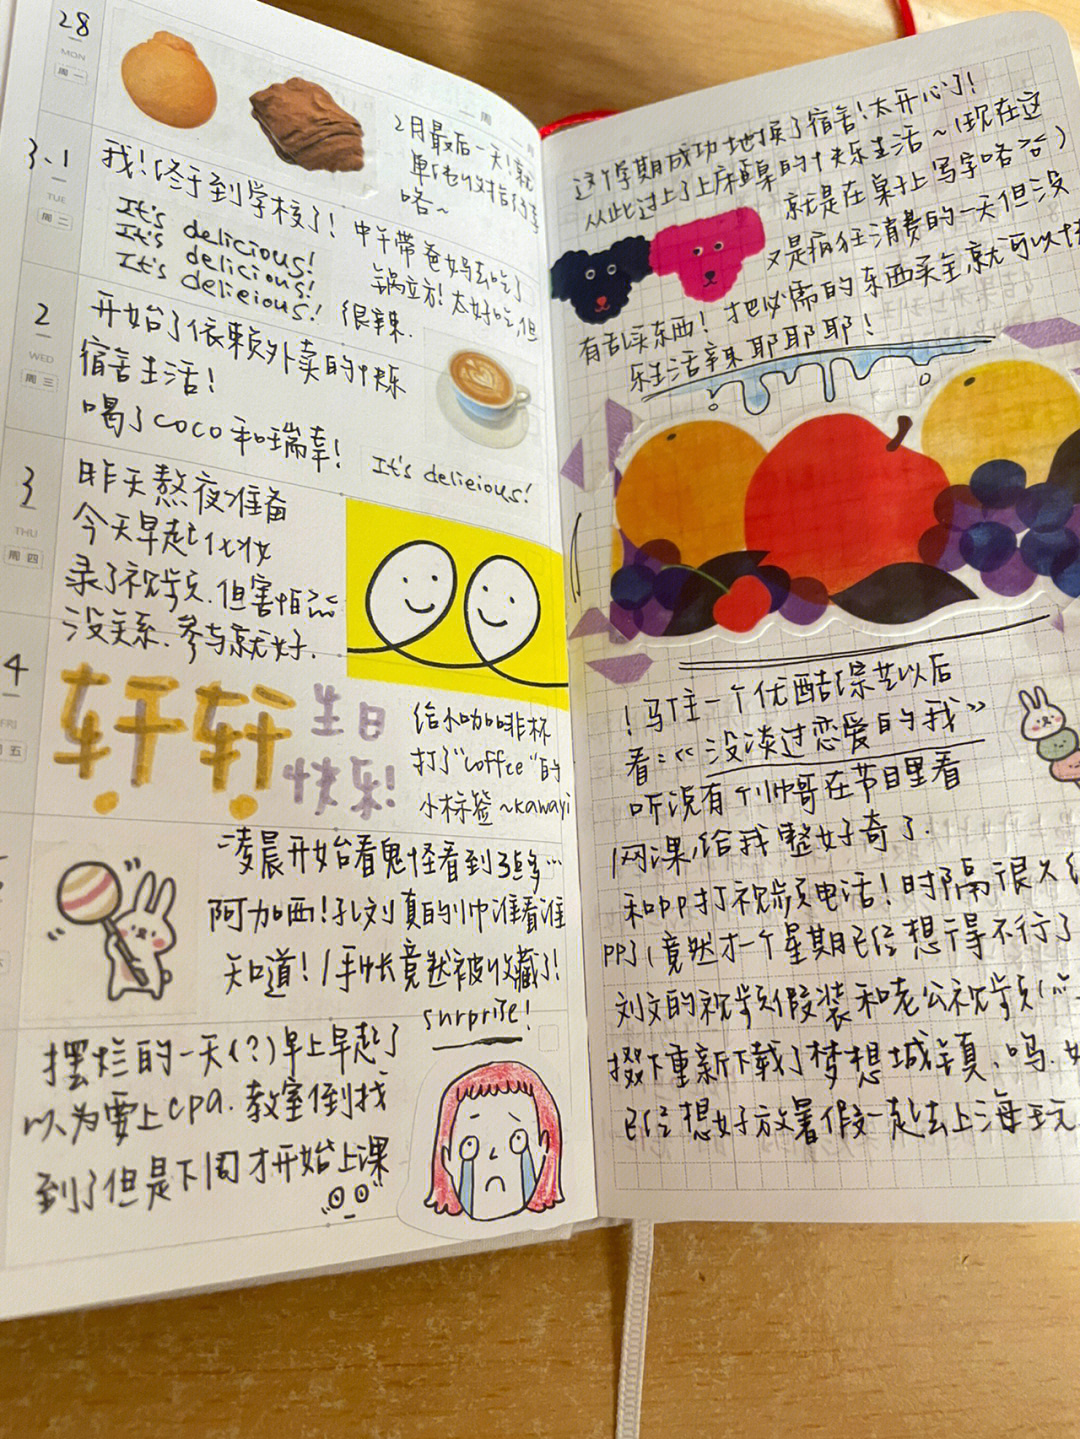 28
MON
周一
2月最后一天!就
咯~
3.1
TUE
周二
我!终于到学校了!中午带爸妈去吃了
锅立方!太好吃,但
很辣.
It's delicious!
It's delicious!
It's delieious!
2
WED
周三
开始了依赖外卖的快乐
宿舍生活!
喝了coco和瑞幸!
It's delieious!
3
THU
周四
昨天熬夜准备
今天早起化妆
录了视频.但害怕
没关系.参与就好.
4
五
轩轩
生日
快乐!
给小咖啡杯
打了"coffee"的
小标签~kawayi
凌晨开始看鬼怪看到3点多…
阿加西!孔刘真的帅谁看谁
知道!手帐竟然被收藏了!
surprise!
摆烂的一天(?)早上早起了
以为要上cpa.教室倒找
到了但是下周才开始上课
这个学期成功地换了宿舍!太开心了!
从此过上了上床下桌的快乐生活~(现在这
就是在桌子上写字咯哈哈)
又是疯狂消费的一天但没
有乱买东西!把必需的东西买全就可以快
乐生活辣耶耶耶!
!马住一个优酷综艺以后
看:《没谈过恋爱的我》
听说有个帅哥在节目里看
网课,给我整好奇了.
和pp打视频电话!时隔很久
pp了(竟然才一个星期已经想得不行了
刘文的视频假装和老公视频(
掇下重新下载了梦想城镇、呜.
已经想好放暑假一起去上海玩